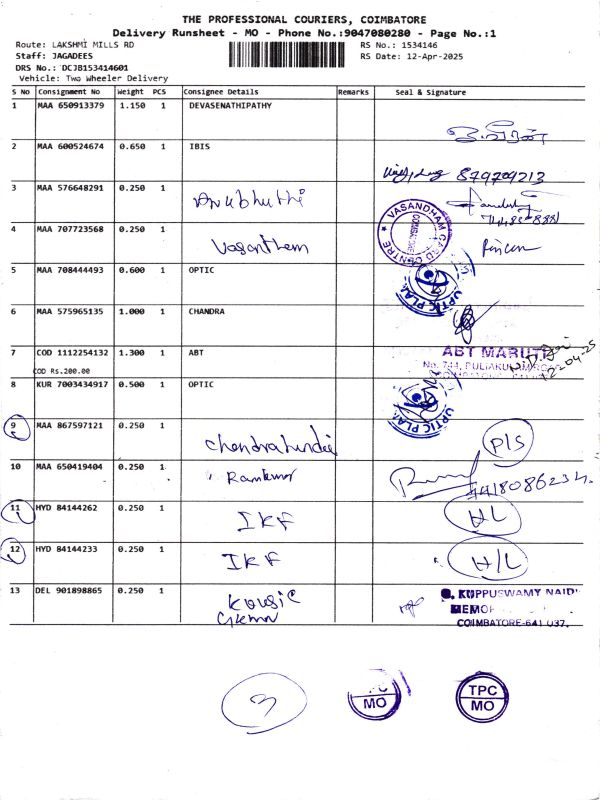 THE PROFESSIONAL COURIERS, COIMBATORE
Delivery Runsheet - MO - Phone No.:9047080280 - Page No.:1
Route: LAKSHMI MILLS RD RS No.: 1534146
Staff: JAGADEES RS Date: 12-Apr-2025
DRS No.: DCJB153414601
Vehicle: Two Wheeler Delivery
S No Consignment No Weight PCS Consignee Details Remarks Seal & Signature
1 MAA 650913379 1.150 1 DEVASENATHIPATHY
2 MAA 600524674 0.650 1 IBIS
879709213
3 MAA 576648291 0.250 1 Anubhuthi
4 MAA 707723568 0.250 1 Vasantham
VASANDHAM CARD CENTRE
COIMBATORE
5 MAA 708444493 0.600 1 OPTIC
OPTIC PLAN
6 MAA 575965135 1.000 1 CHANDRA
7 COD 1112254132 1.300 1 ABT
COD Rs.200.00
ABT MARUTI
No. 744, PULIAKULAM ROAD
12-04-25
8 KUR 7003434917 0.500 1 OPTIC
OPTIC PLAN
9 MAA 867597121 0.250 1 P/S
10 MAA 650419404 0.250 1 Ramkumar
11 HYD 84144262 0.250 1 IKF H/L
12 HYD 84144233 0.250 1 IKF H/L
13 DEL 901898865 0.250 1
G. KUPPUSWAMY NAIDU
MEMOR
COIMBATORE-641 037.
3
TPC
MO
TPC
MO